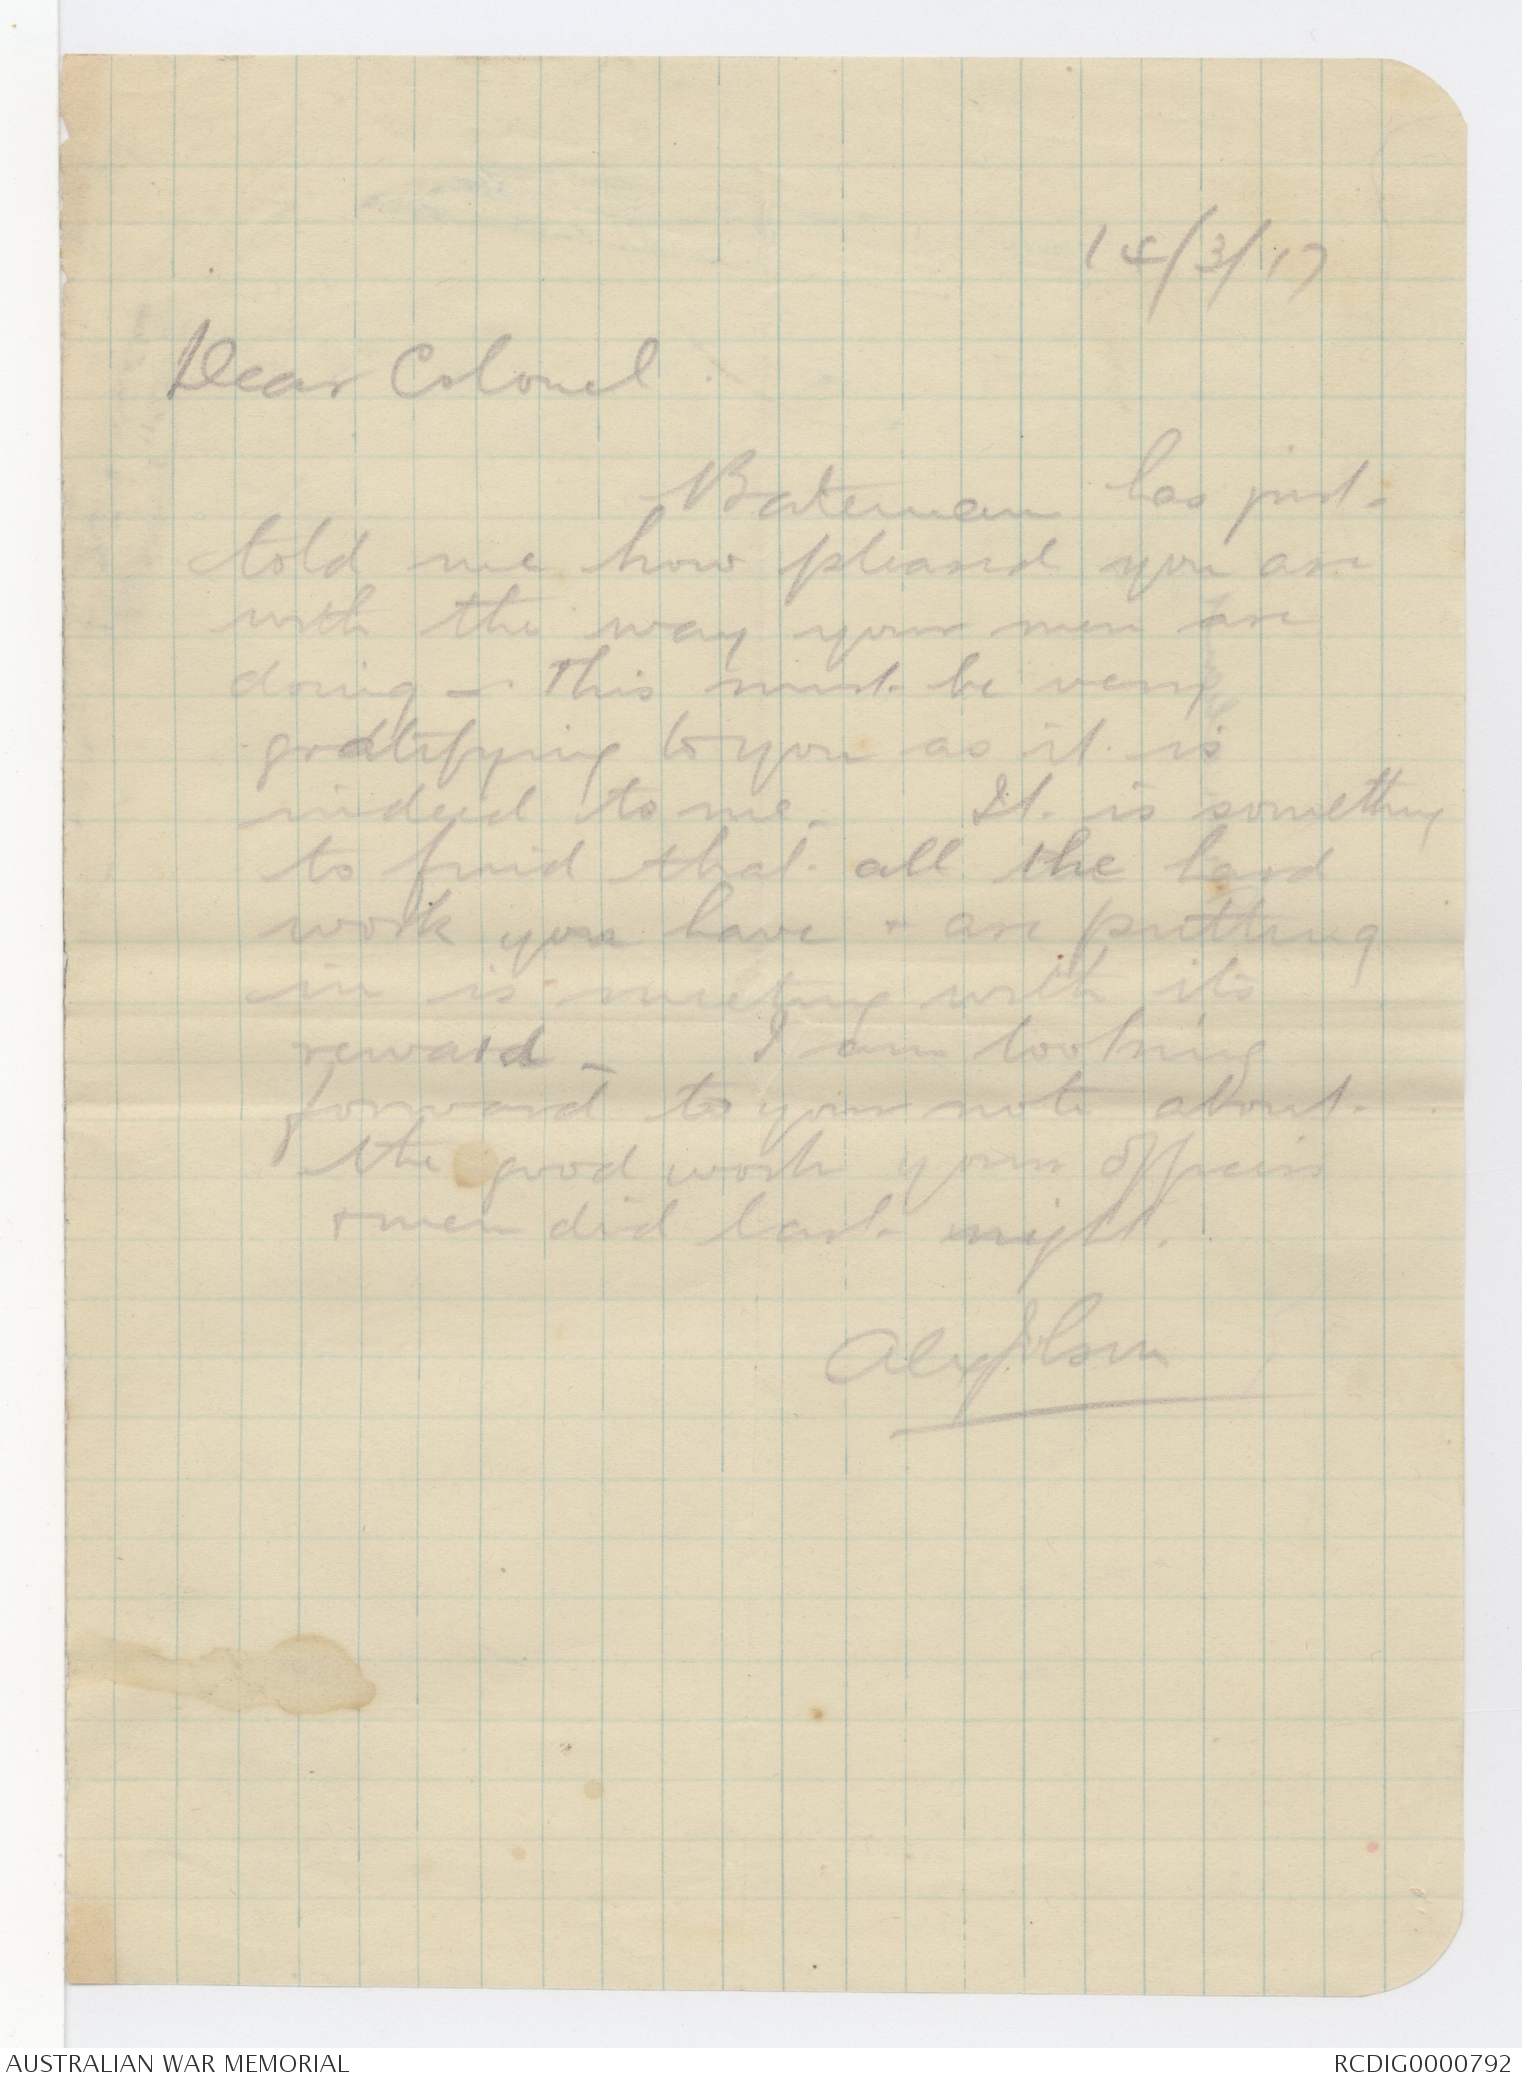 14/3/17
Dear Colonel
Bateman has just
told me how pleased you are
with the way your men are
doing - This must be very
gratifying to you as it is
indeed to me. It is something
to find that all the hard
work you have + are putting
in is meeting with its
reward - I am looking
forward to your note about
the good work your officers
+ men did last night.
Alex
AUSTRALIAN WAR MEMORIAL
RCDIG0000792